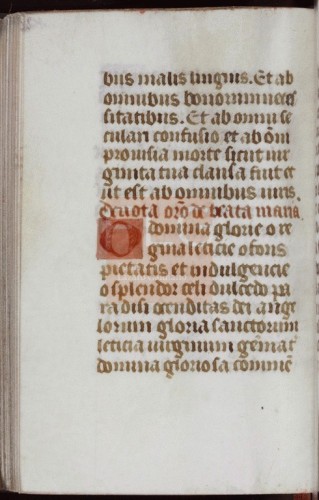 bus malis linguis. Et ab
omnibus bonorum neces
sitatibus. Et ab omni se
culari confusio et ab om̄i
provisia morte sicut vir
ginita tua clausa fuit et
ut est ab omnibus viris.
Devota or̄o de beata maria
O domina glorie o re
gina leticie o fons
pietatis et indulgencie
o splendor celi dulcedo pa
radisi o cenditas dei ange
lorum gloria sanctorum
leticia virginum gēmat
domina gloriosa com̄mē